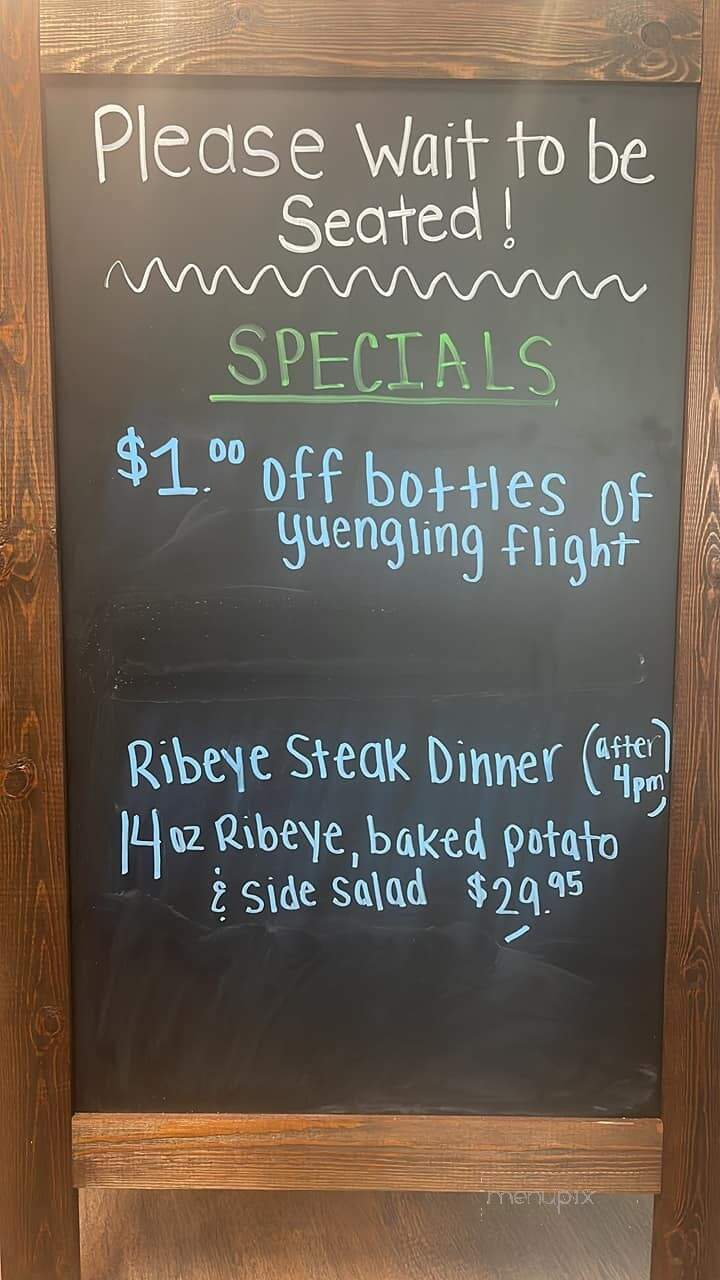 Please Wait to be
Seated!
SPECIALS
$1.00 off bottles of
yuengling flight
Ribeye Steak Dinner (after
4pm)
14oz Ribeye, baked potato
& side salad $29.95
menupix